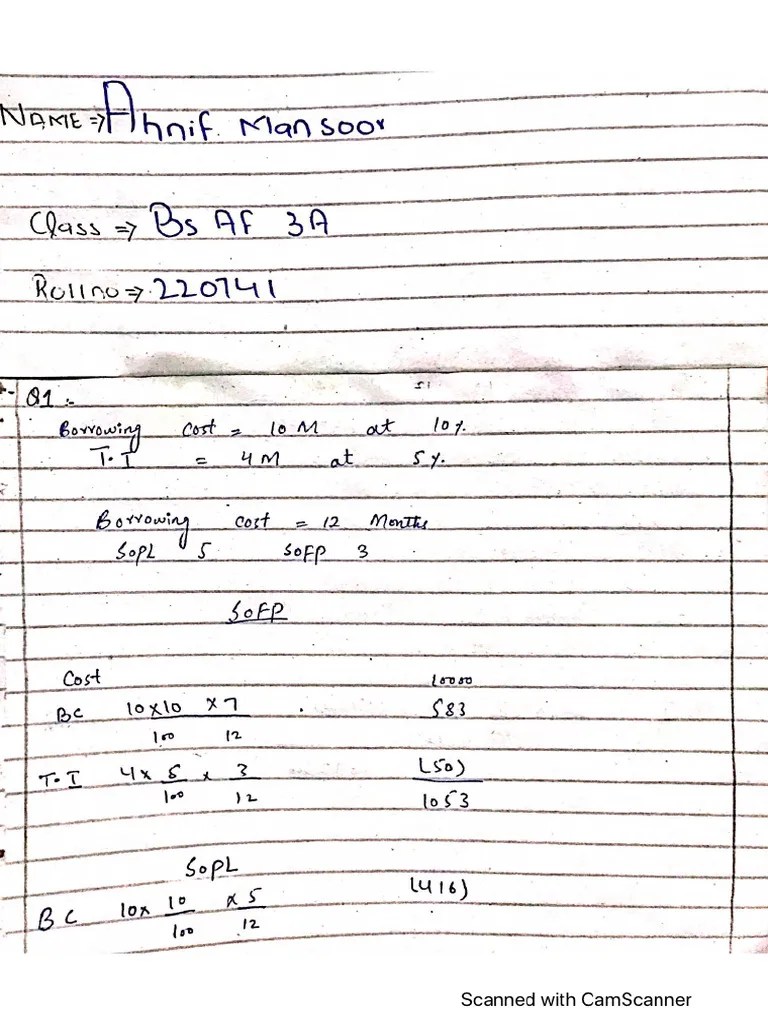 NAME => Ahnif. Mansoor
Class => Bs AF 3A
Roll no => 220741
Q1 :-
Borrowing cost = 10 M at 10%.
T. I = 4 M at 5%.
Borrowing cost = 12 Months
SOPL 5 SOFP 3
SOFP
Cost 10000
BC 10x10 x 7 583
100 12
T. I 4 x 5 x 3 (50)
100 12 1053
SOPL
BC 10x 10 x 5 (416)
100 12
Scanned with CamScanner